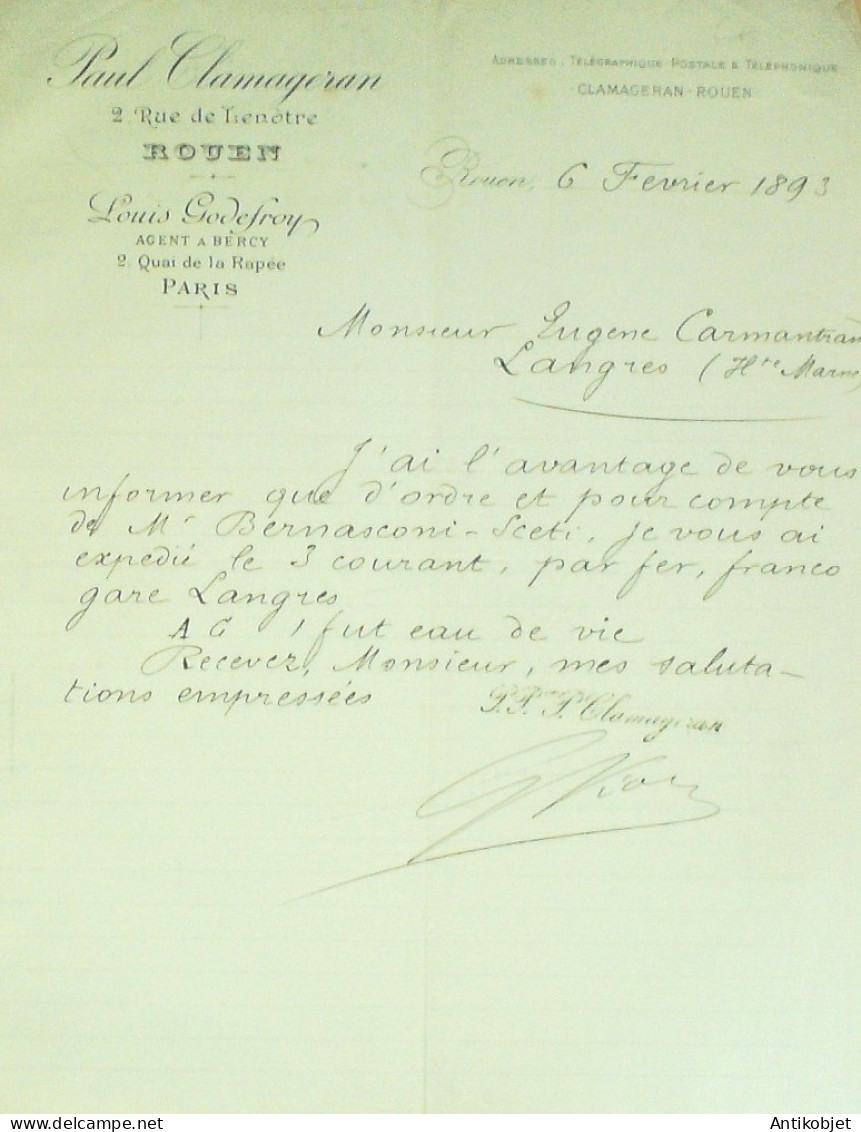 Paul Clamageran
2. Rue de Lenôtre
ROUEN
Louis Godefroy
AGENT A BERCY
2. Quai de la Rapée
PARIS
ADRESSES, TÉLÉGRAPHIQUE POSTALE & TÉLÉPHONIQUE
CLAMAGERAN-ROUEN
Rouen, 6 Fevrier 1893
Monsieur Eugene Carmantran
Langres (Hte Marne)
J'ai l'avantage de vous
informer que d'ordre et pour compte
de Mr Bernasconi-Sceti, je vous ai
expedié le 3 courant, par fer, franco
gare Langres
A G 1 fut eau de vie
Recevez, Monsieur, mes saluta-
tions empressées
P. Clamageran
Antikobjet